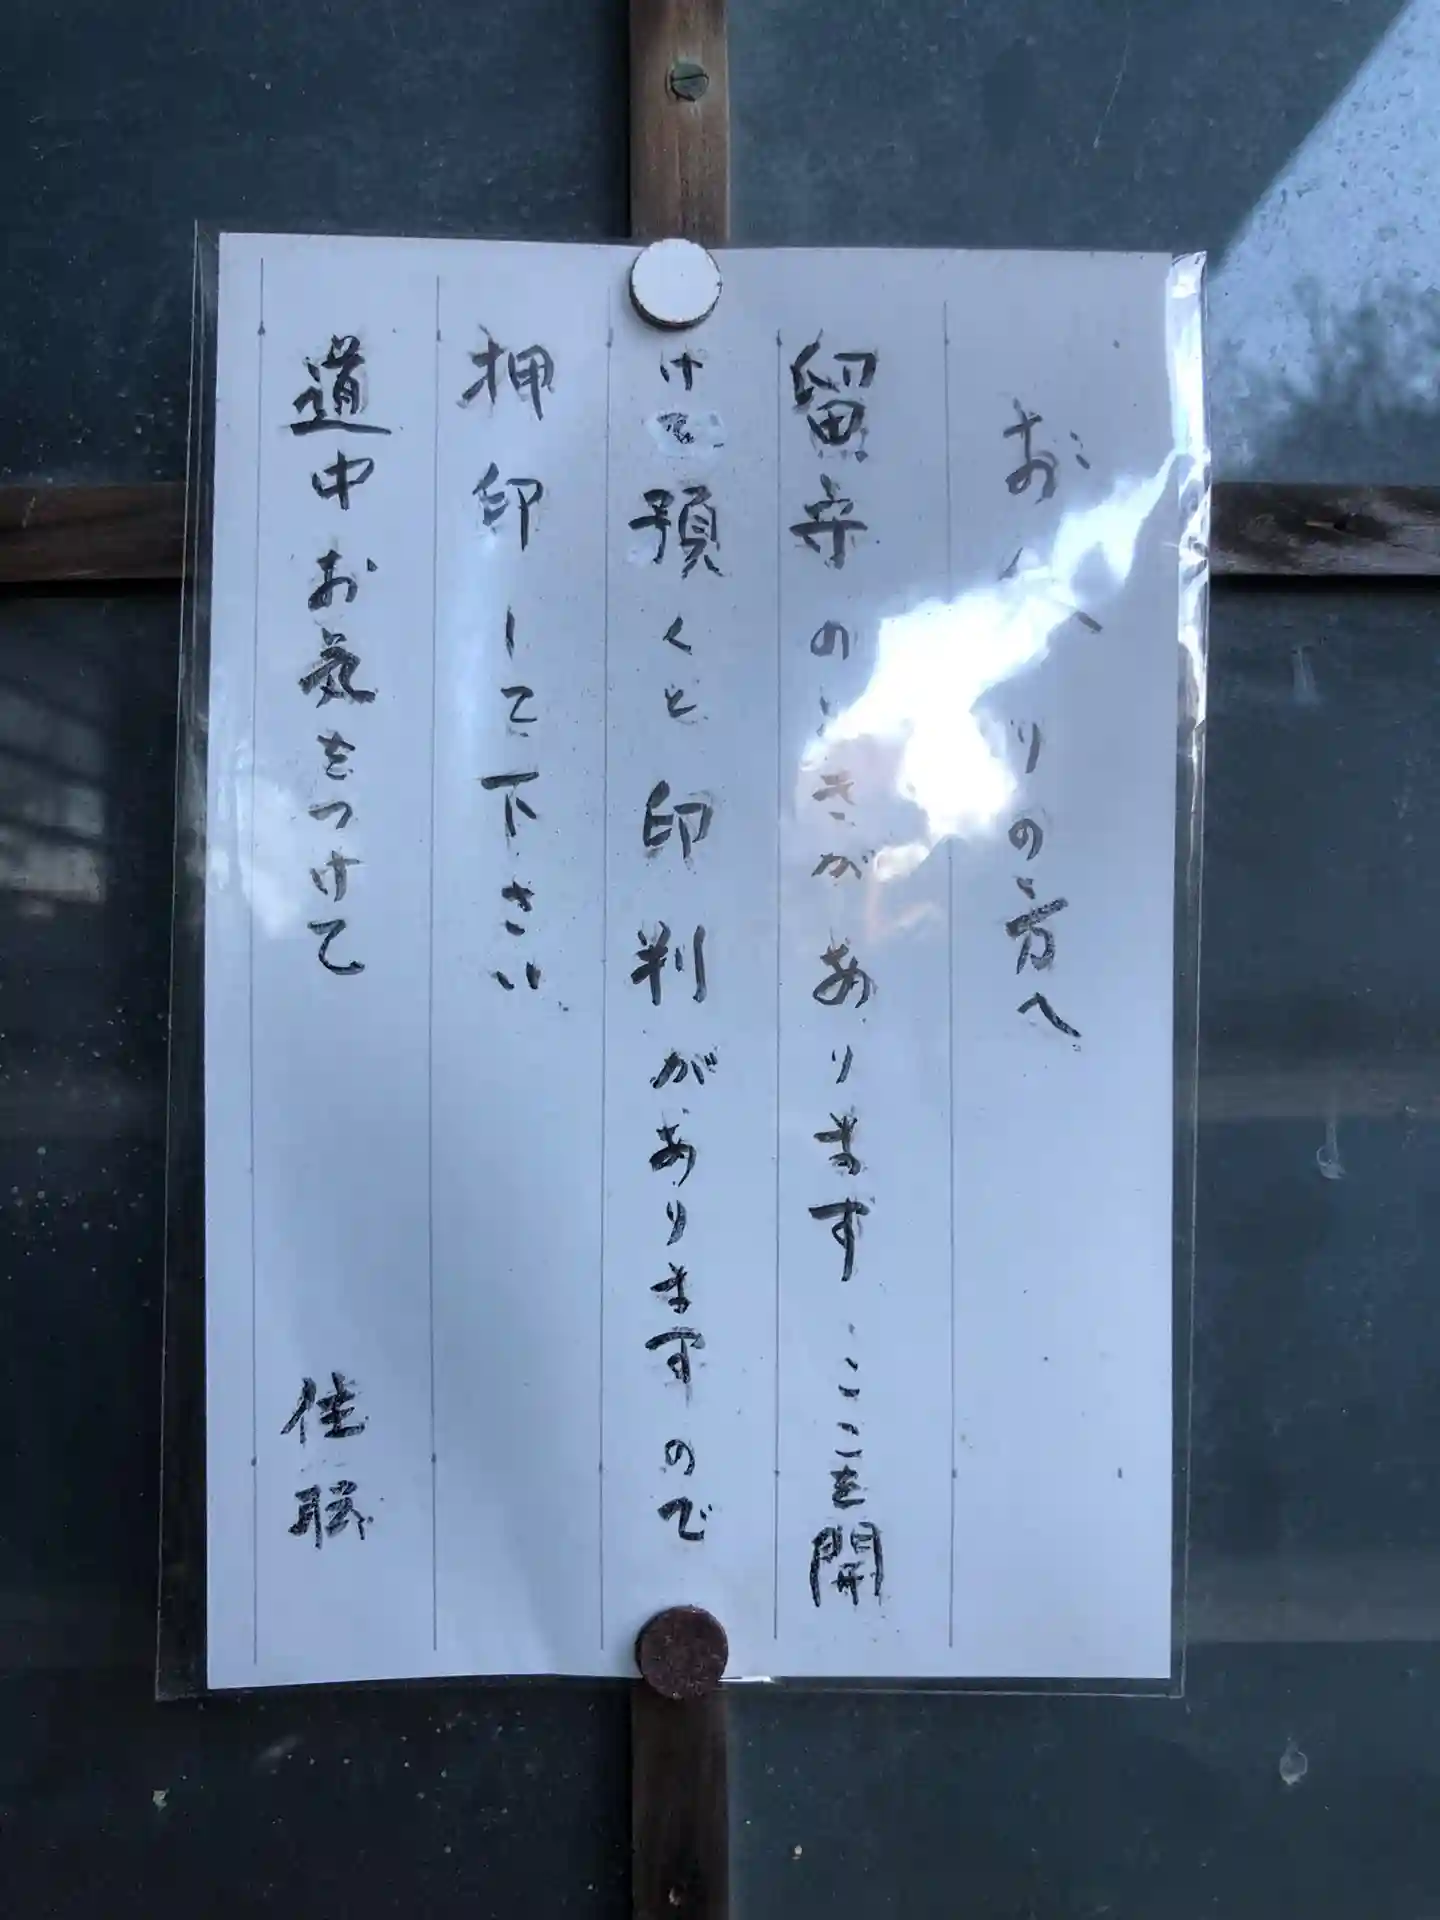 お りの方へ
留守のときがあります ここを開
けて預くと印判がありますので
押印して下さい
道中お気をつけて
住職